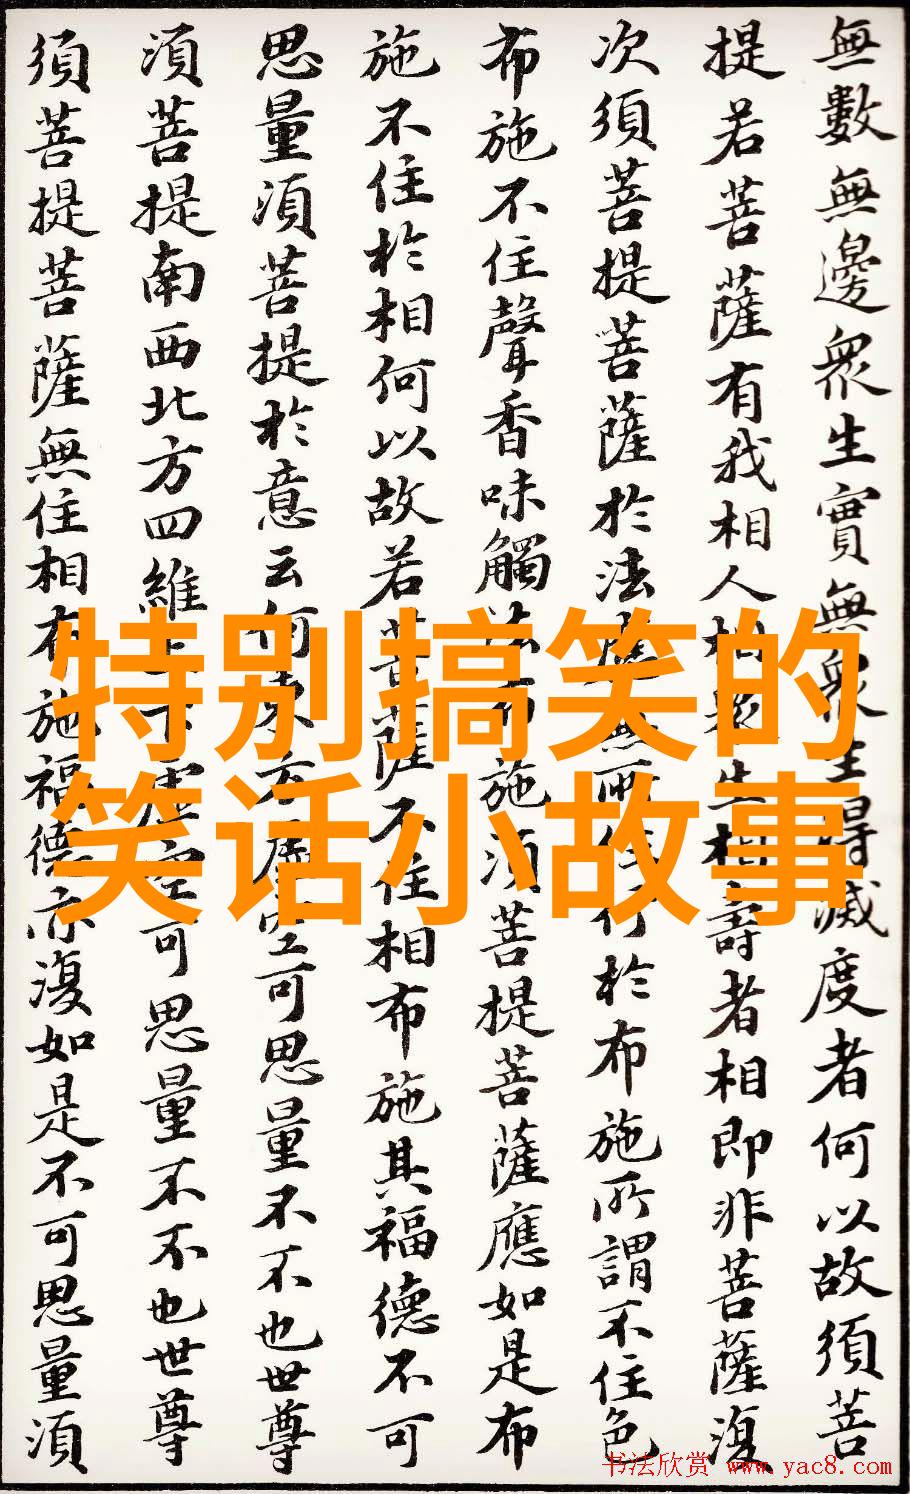 無數無邊衆生實無衆生得滅度者何以故須菩
提若菩薩有我相人相衆生相壽者相即非菩薩復
次須菩提菩薩於法應無所住行於布施所謂不住色
布施不住聲香味觸法布施須菩提菩薩應如是布
施不住於相何以故若菩薩不住相布施其福德不可
思量須菩提於意云何東方虛空可思量不不也世尊
須菩提南西北方四維上下虛空可思量不不也世尊
須菩提菩薩無住相布施福德亦復如是不可思量須
特别搞笑的
笑话小故事
书法欣赏 www.yac8.com